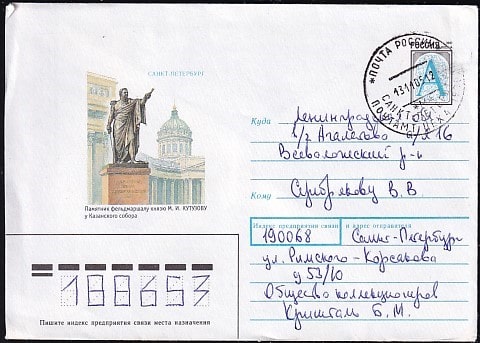 САНКТ-ПЕТЕРБУРГ
Памятник фельдмаршалу князю М. И. КУТУЗОВУ
у Казанского собора
РОССИЯ
А
ПОЧТА РОССИИ
131105 12
САНКТ-
ПОЧТАМТ
Куда
Ленинградская обл
п/о Агалатово д/я 16
Всеволожский р-н
Кому
Серебрякову В. В.
Индекс предприятия связи
и адрес отправителя
190068
Санкт-Петербург
ул. Римского-Корсакова
д 53/10
Общество коллекционеров
Кришталь Б. М.
188653
Пишите индекс предприятия связи места назначения